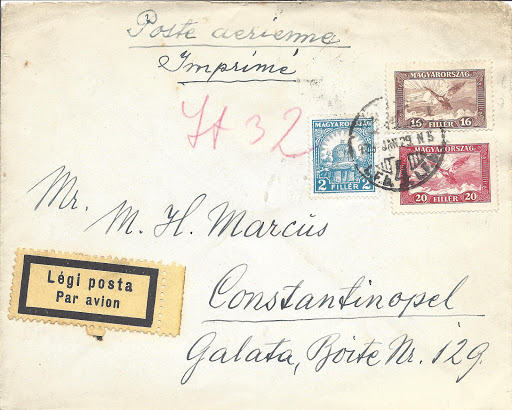 Poste aérienne
Imprimé
MAGYARORSZÁG
16 FILLÉR 16
MAGYARORSZÁG
2 FILLÉR 2
JAN 29 N 5
MAGYARORSZÁG
20 FILLÉR 20
32
Mr. M. H. Marcus
Légi posta
Par avion
Constantinopel
Galata, Boite Nr. 129.